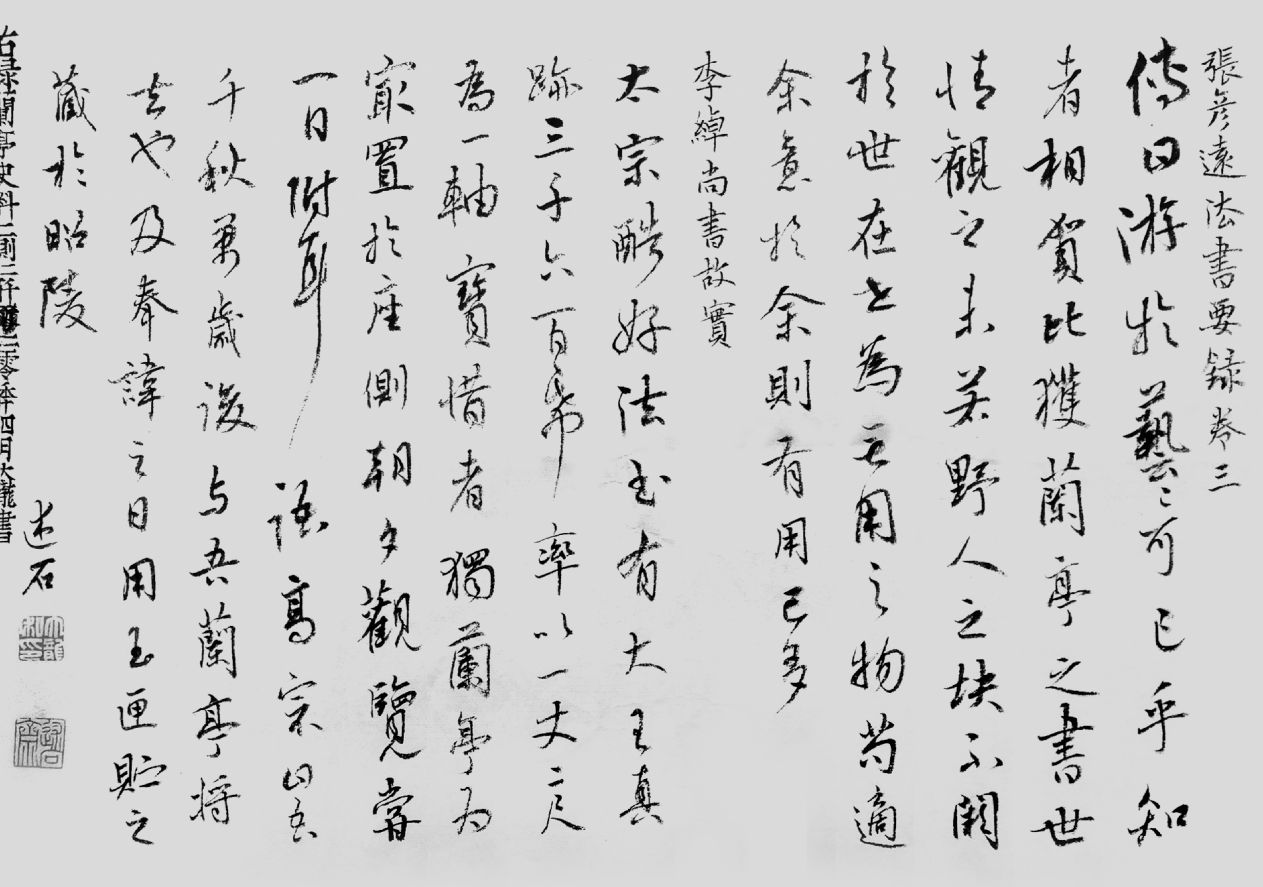 張彦遠法書要録卷三
傳曰游於藝〻可已乎知
者相賀比獲蘭亭之書世
情觀之未若野人之塊不闕
於世在世為無用之物苟適
余意於余則有用已多
李綽尚書故實
太宗酷好法書有大王真
跡三千六百帋率以一丈二尺
為一軸寶惜者獨蘭亭為
冣置於座側朝夕觀覽嘗
一日附耳語高宗曰吾
千秋萬歳後与吾蘭亭將
去也及奉諱之日用玉匣貯之
藏於昭陵
右録蘭亭史料二則二零四月大龍書
述石